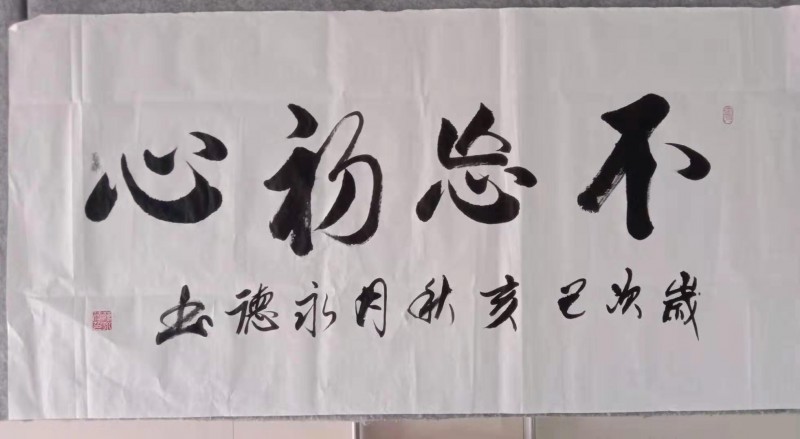 不忘初心
歲次己亥秋月永德书